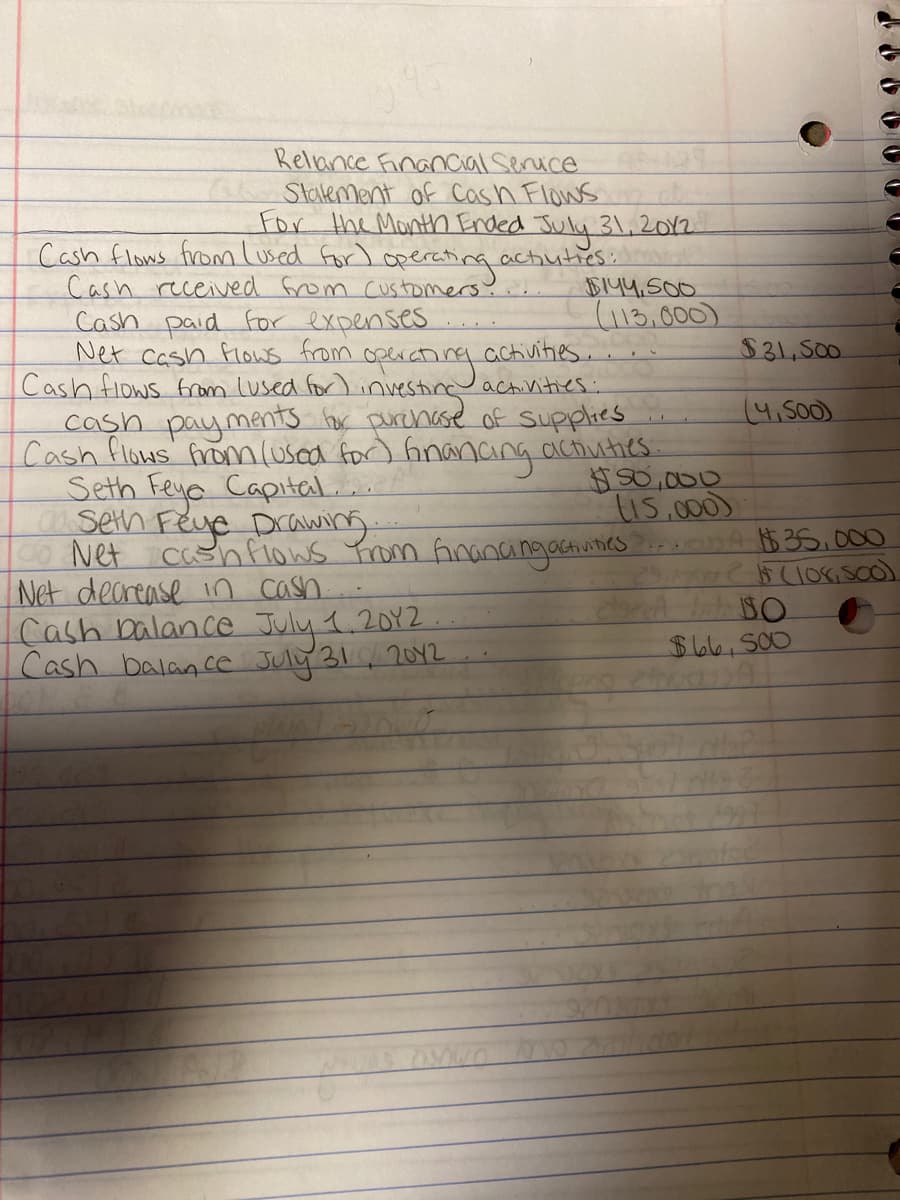 Reliance Financial Service
Statement of Cash Flows
For the Month Ended July 31, 20Y2
Cash flows from (used for) operating activities:
Cash received from customers: ... $144,500
Cash paid for expenses .... (113,000)
Net cash flows from operating activities..... $31,500
Cash flows from (used for) investing activities:
cash payments for purchase of supplies ... (4,500)
Cash flows from (used for) financing activities.
Seth Feye Capital... $50,000
Seth Feye Drawing... (15,000)
Net cashflows from financing activities .... $35,000
Net decrease in cash... $(108,500)
Cash balance July 1, 20Y2 .. $0
Cash balance July 31, 20Y2 .. $66,500